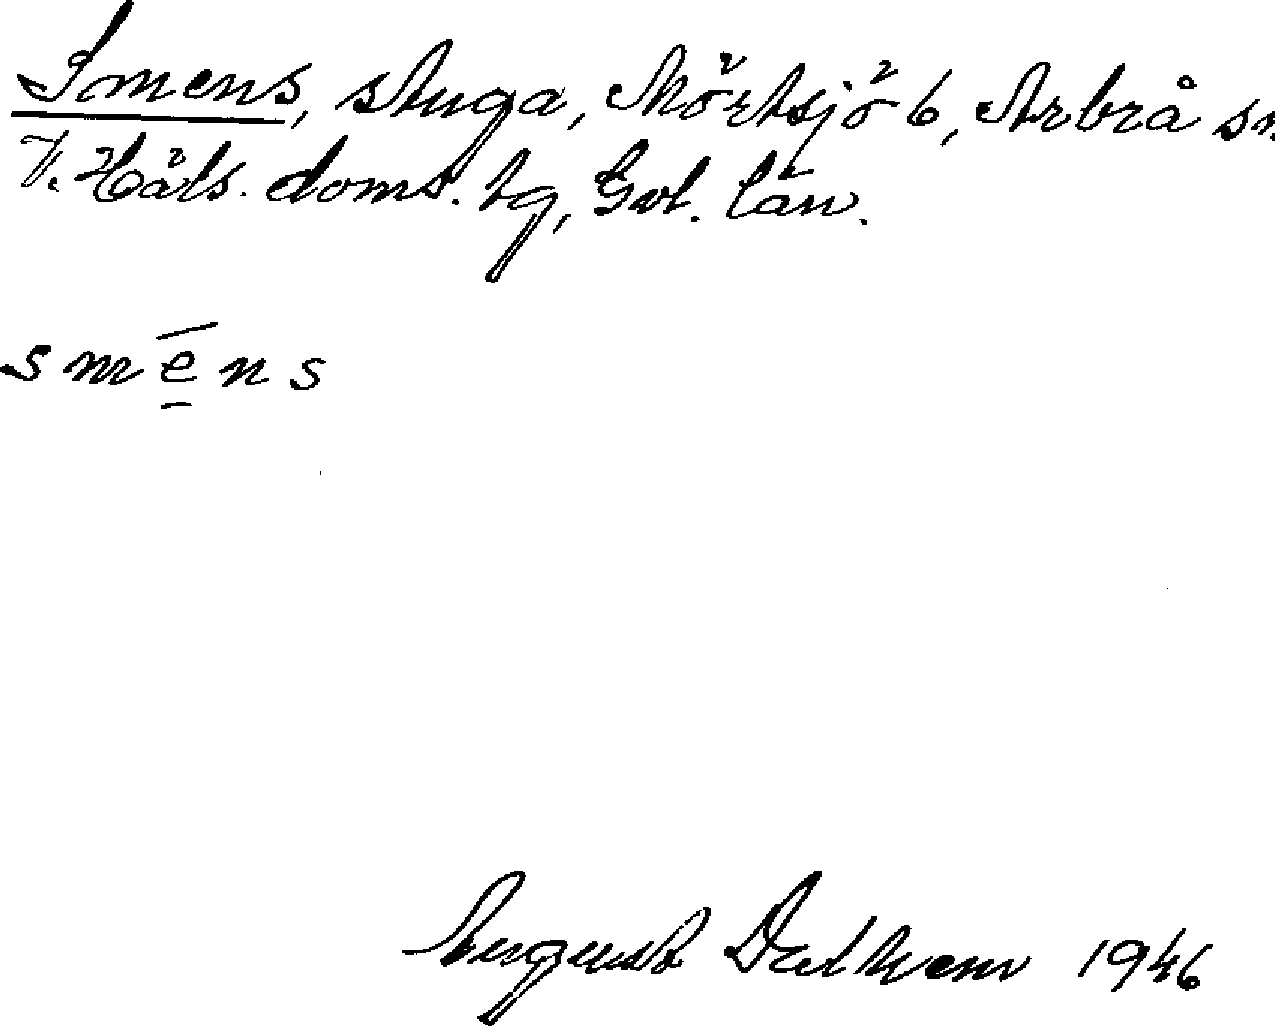 Smens, stuga, Mörtsjö 6, Arbrå sn
V. Häls. doms. tg, Gvl. län.
s m ē̱ n s
August 1946